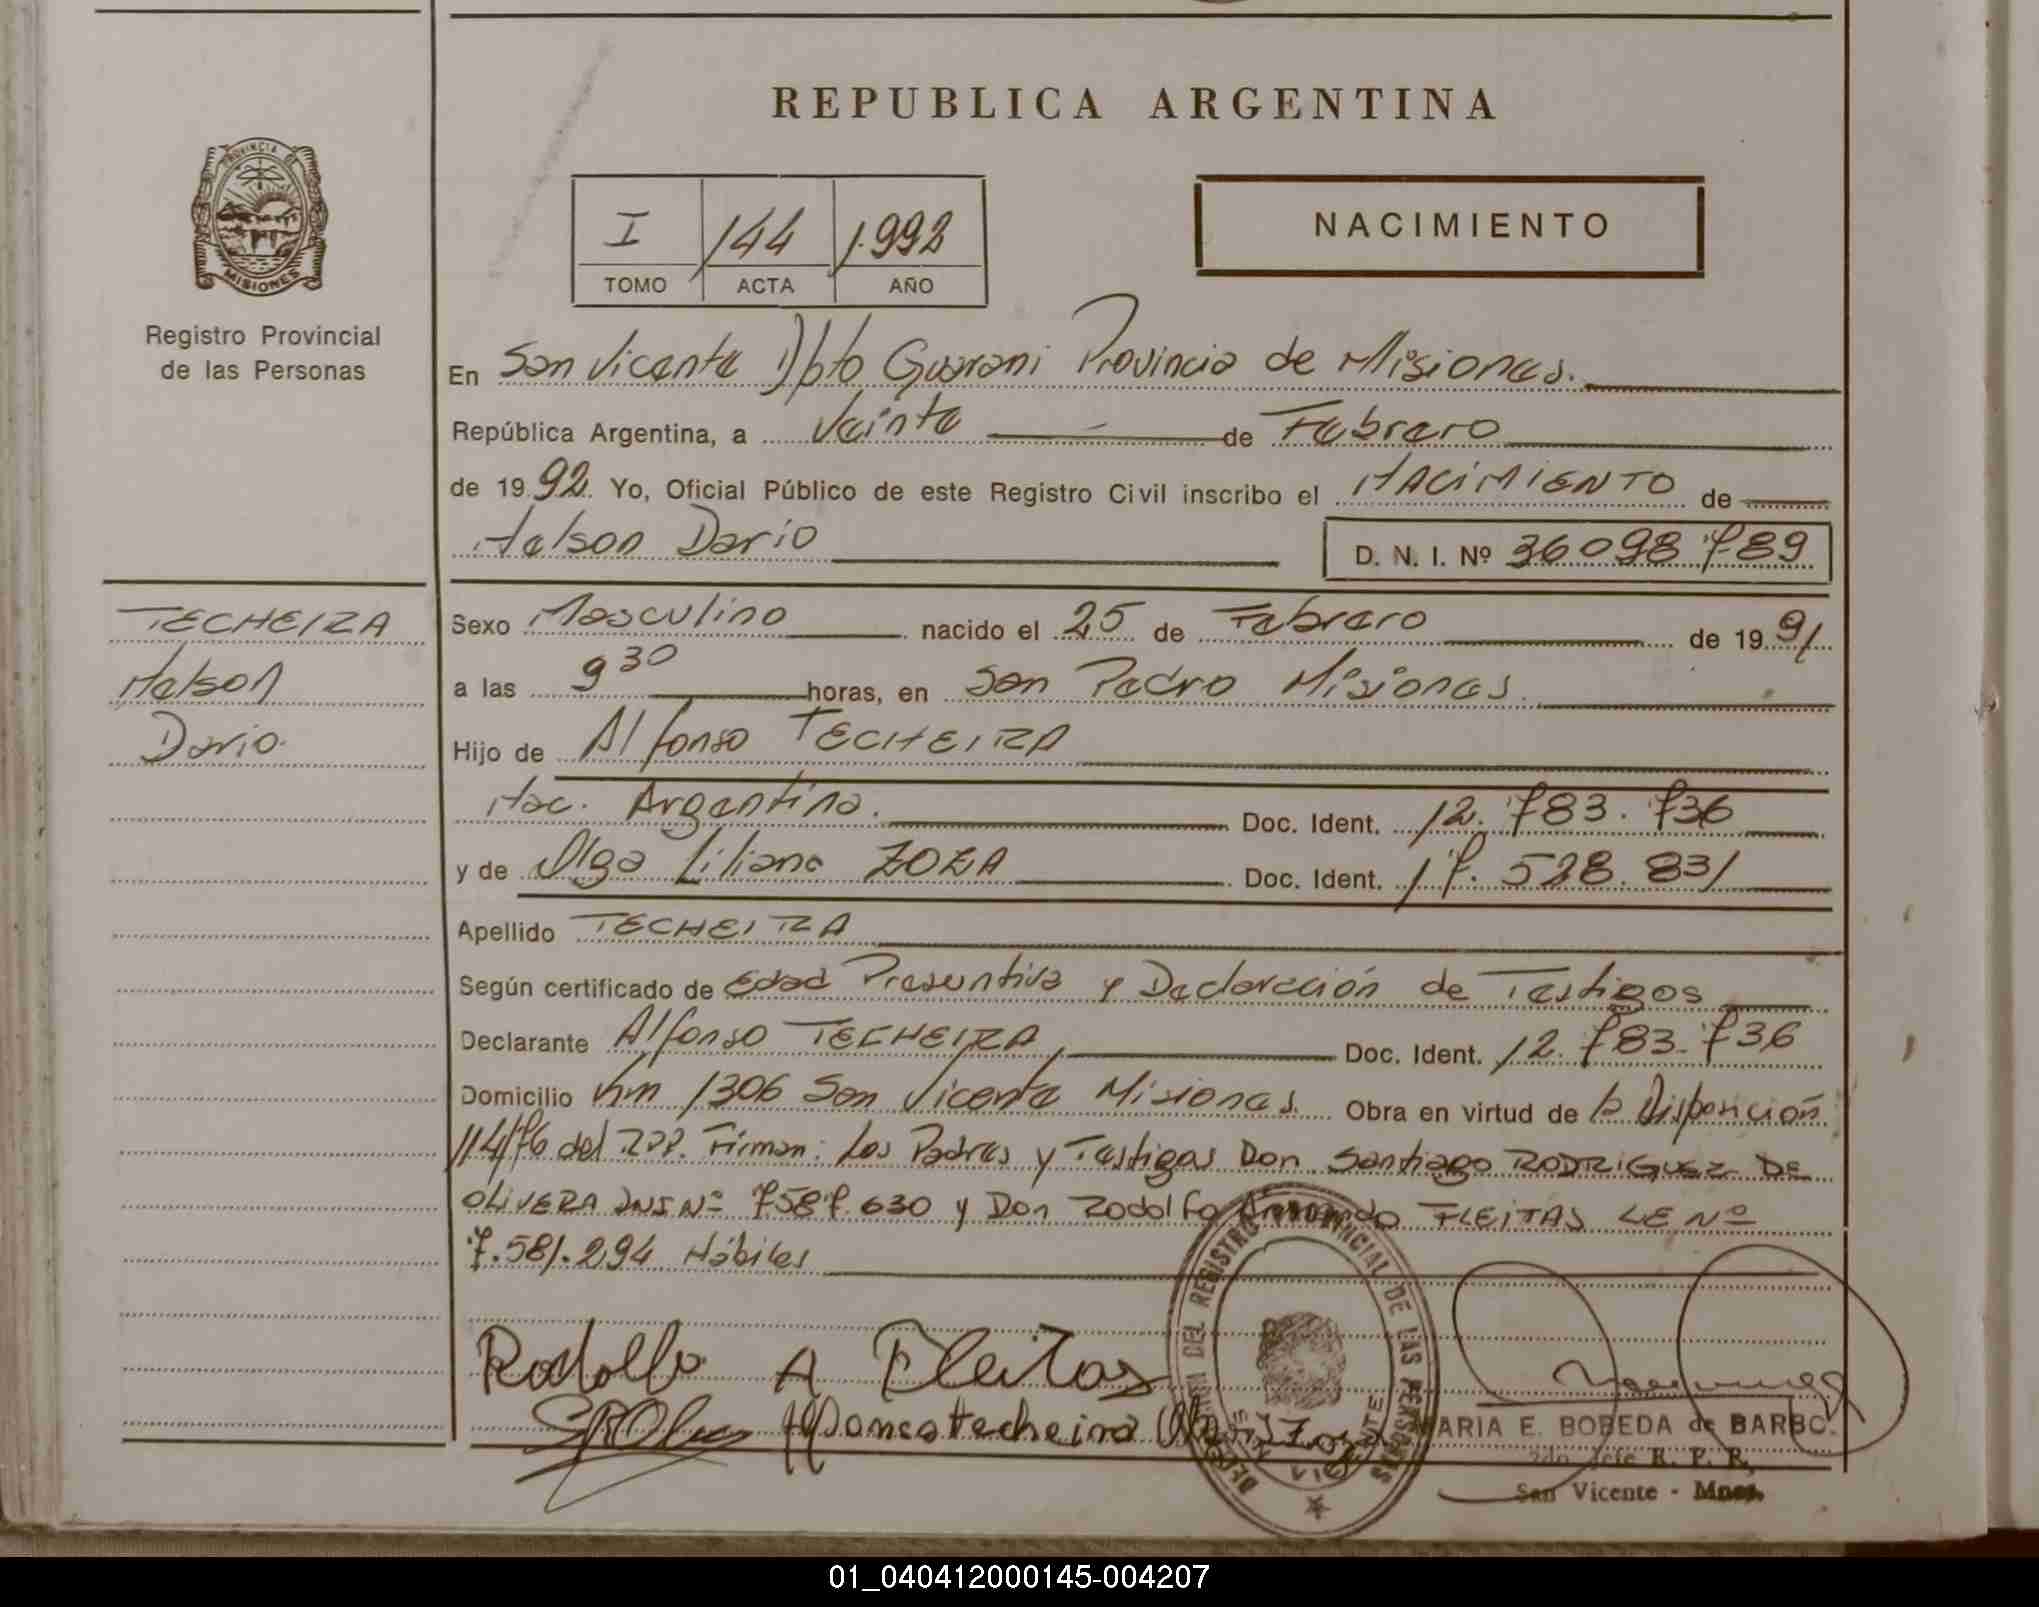 REPUBLICA ARGENTINA
PROVINCIA DE
MISIONES
Registro Provincial
de las Personas
I 144 1.992
TOMO ACTA AÑO
NACIMIENTO
En San Vicente Dpto Guarani Provincia de Misiones.
República Argentina, a Veinte de Febrero
de 1992. Yo, Oficial Público de este Registro Civil inscribo el NACIMIENTO de
Nelson Dario D. N. I. Nº 36098.789
TECHEIRA
Nelson
Dario.
Sexo Masculino nacido el 25 de Febrero de 1991
a las 9 30 horas, en San Pedro Misiones.
Hijo de Alfonso TECHEIRA
Nac. Argentina. Doc. Ident. 12.783.736
y de Olga Liliana ZOZA Doc. Ident. 17.528.831
Apellido TECHEIRA
Según certificado de Edad Presuntiva y Declaración de Testigos
Declarante Alfonso TECHEIRA, Doc. Ident. 12.783.736
Domicilio Km 1306 San Vicente Misiones. Obra en virtud de la Disposición
114/76 del RPP. Firman: Los Padres y Testigos Don Santiago RODRIGUEZ DE
OLIVERA DNI Nº 7587.630 y Don Rodolfo Armando FLEITAS LE Nº
7.581.294 Hábiles
Rodolfo A Fleitas
Alfonso techeira
DEL REGISTRO PROVINCIAL DE LAS PERSONAS
MARIA E. BOBEDA de BARBO.
2do Jefe R. P. P.
San Vicente - Mnes.
01_040412000145-004207